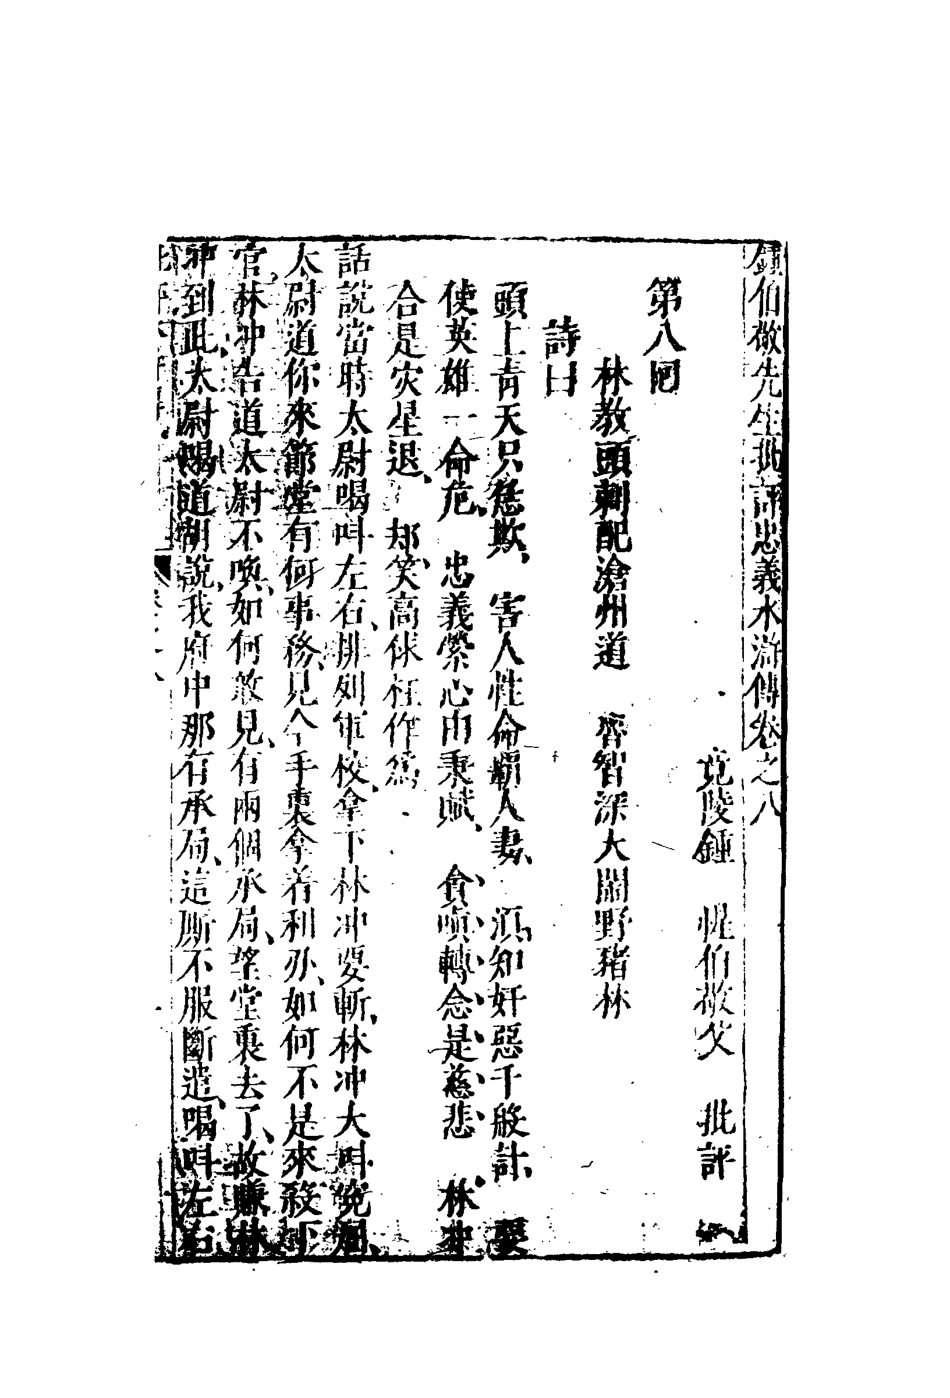 鍾伯敬先生批評忠義水滸傳卷之八
竟陵鍾　惺伯敬父　批評
第八囘
林教頭刺配滄州道　魯智深大鬧野猪林
詩曰
頭上青天只恁欺、害人性命霸人妻、須知奸惡千般計、要
使英雄一命危、忠義縈心由秉賦、貪嗔轉念是慈悲　林冲
合是灾星退、却笑高俅枉作為
話說當時太尉喝呌左右排列軍校、拿下林冲要斬、林冲大呌寃屈、
太尉道你來節堂有何事務、見今手裏拿着利刃、如何不是來殺下
官、林冲告道太尉不喚、如何敢見、有兩個承局、望堂裏去了、故賺林
冲到此、太尉喝道胡說、我府中那有承局、這厮不服斷遣、喝呌左右